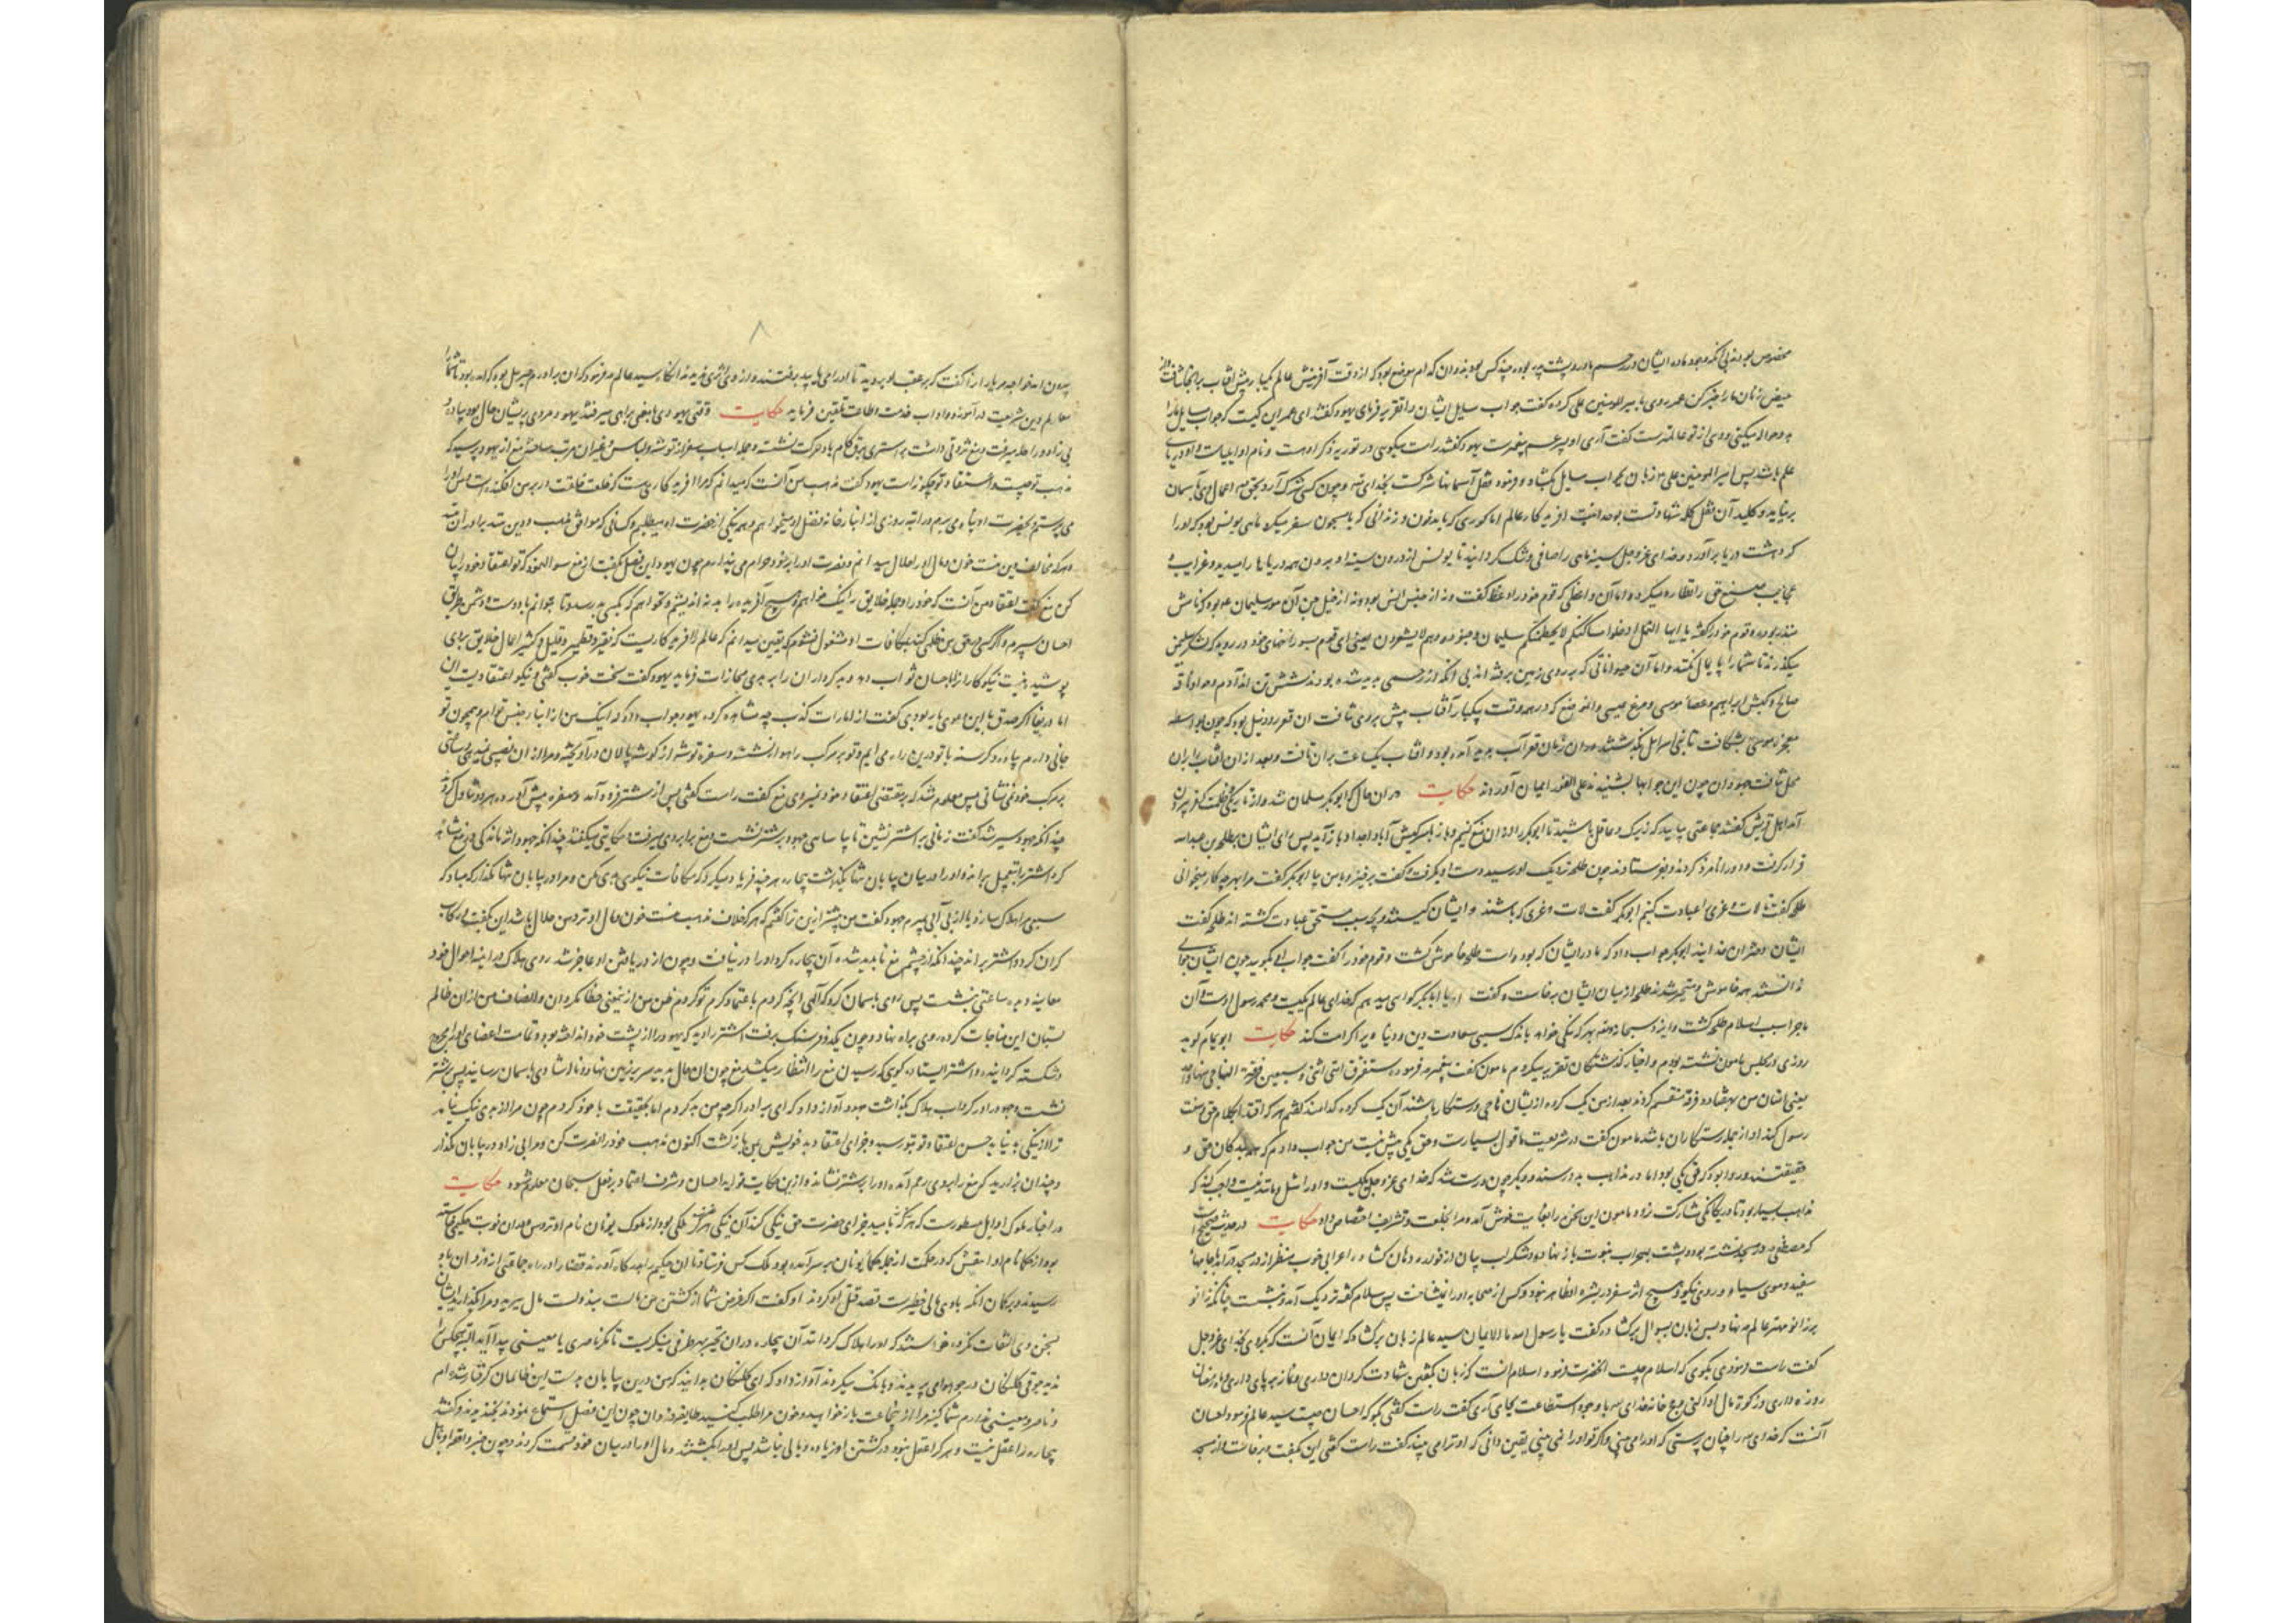 مخصوص بودند بی آنکه وجود ماده ایشان در رحم مادر و پشت پدر بوده چند کس بودند و آن کدام موضع بود که از وقت آفرینش عالم یکبار بیش آفتاب بر آنجا نتافت
حیض زنان ما را خبر کن عمر روی با میرالمومنین علی کرده گفت جواب سایل ایشان را تقریر فرمای یهود گفتند ای عمر این کیست که جواب سایل ما را
بدو حواله میکنی و وی از تو عالمترست گفت آری او پسر عم پیغمبرست یهود گفتند راست میگویی در توریه ذکر اوست و نام او ایلیاست و او دریای
علم باشد پس امیرالمومنین علی زبان بجواب سایل بگشاد و فرمود قفل آسمانها شرکست بخدای و چون کسی شرک آرد بحق اعمال وی بآسمان
برنیاید و کلید آن قفل کلمه شهادتست بوحدانیت آفریدگار عالم اما گوری که با مدفون و زندانی که با مسجون سفر میکرد ماهی یونس بود که او را
کرد هشت دریا برآورد و خدای عزوجل سینه ماهی را صافی و تنک گردانید تا یونس از درون سینه او بیرون همه دریاها را میدید و غرایب و
عجایب صنع حق را نظاره میکرد و اما آن واعظی که قوم خود را وعظ گفت و نه از جنس انس بود و نه از خیل جن آن مور سلیمان بود که نامش
منذر بود و قوم خود را گفت یا ایها النمل ادخلوا مساکنکم لا یحطمنکم سلیمان و جنوده و هم لا یشعرون یعنی ای قوم بسوراخهای خود در روید که لشکر سلیمان
میگذرند تا شما را پایمال نکنند و اما آن حیواناتی که بر روی زمین برفتند بی آنکه از رحمی پدید شده بودند شش تن اند آدم و حوا و ناقه
صالح و کبش ابراهیم و عصاء موسی و مرغ عیسی و آن موضع که در همه وقت یکبار آفتاب بیش بر وی نتافت آن قعر رود نیل بود که چون بواسطه
معجزه موسی بشکافت تا بنی اسرائیل بگذشتند و در آن زمان قعر آب پدید آمده بود و آفتاب یک ساعت بران تافت و بعد ازان آفتاب بران
محل نتافت جهودان چون این جوابها بشنیدند علی الفور ایمان آوردند حکایت دران حال که ابوبکر مسلمان شد و از تاریکی ظلمت کفر بیرون
آمد اهل قریش گفتند جماعتی بیایید که زیرک و عاقل باشید تا ابوبکر را از آن منع کنیم و باز بر کیش آبا و اجداد باز آید پس رای ایشان بطلحه بن عبدالله
قرار گرفت و او را نامزد کردند و بفرستادند چون طلحه نزدیک او رسید دست او بگرفت و گفت برخیز و با من بیا ابوبکر گفت مرا بهر چه کار میخوانی
طلحه گفت تا لات و عزی را عبادت کنیم ابوبکر گفت لات و عزی که باشند و ایشان کیستند و بچه سبب مستحق عبادت گشته اند طلحه گفت
ایشان دختران خدایند ابوبکر جواب داد که مادر ایشان که بوده است طلحه خاموش گشت و قوم خود را گفت جواب او بگویید چون ایشان جوابی
ندانستند همه خاموش و متحیر شدند طلحه از میان ایشان برخاست و گفت ای ابابکر گواهی میدهم که خدای عالم یکیست و محمد رسول اوست و آن
ماجرا سبب اسلام طلحه گشت و ایزد سبحانه و تعالی هر که را نیکی خواهد باندک سببی سعادت دین و دنیا ویرا کرامت کند حکایت ابو تمام گوید
روزی در مجلس مامون نشسته بودم و اخبار گذشتگان تقریر میکردم مامون گفت پیغمبر فرموده ستفترق امتی اثنی و سبعین فرقة الناجی منها واحد
یعنی امتان من بهفتاد و دو فرقه منقسم گردند بعد از من یک گروه از یشان ناجی و رستگار باشند آن یک گروه کدامند گفتم هر که اقتدا بکلام حق و سنت
رسول کند او از جمله رستگاران باشد مامون گفت در شریعت ما قول بسیارست و حق یکی بیش نیست من جواب دادم که
حقیقتند و روا بود که حق یکی بود اما در مذاهب بدو رسند و دیگر چون درست شد که خدای عزوجل یکیست و او را مثل و مانند نیست
مذاهب بسیار بود تا در یگانگی مشارکت نبود مامون این سخن را بغایت خوش آمد و مرا بخلعت و تشریف اختصاص داد حکایت در حدیث صحیح است
که مصطفی در مسجد نشسته بود و پشت بمحراب نبوت باز نهاده و شکر آب بیان از فواره دهان گشاده اعرابی خوب منظر از در مسجد درآمد با جامهاء
سفید و موی سیاه و روی نیکو و هیچ اثر سفر در بشره او ظاهر نبود و کس از صحابه او را نمیشناخت پس سلام گفته نزدیک آمد و بنشست چنانکه زانو
بر زانو مهتر عالم نهاد و پس زبان بسوال برگشاد و گفت یا رسول الله ما الایمان سید عالم زبان برگشاد که ایمان آنست که بگروی بخدای عزوجل
گفت راست فرمودی بگوی که اسلام چیست آنحضرت فرمود اسلام آنست که زبان بگفتن شهادت گردان داری و نماز بر پای داری و ماه رمضان
روزه داری و زکوة مال ادا کنی و حج خانه خدای با وجود استطاعت بجای آری گفت راست گفتی بگو که احسان چیست سید عالم فرمود احسان
آنست که خدای را چنان پرستی که او را می بینی و اگر تو او را نمی بینی یقین دانی که او ترا می بیند گفت راست گفتی این بگفت و برخاست و از مسجد
۸
بیرون آمد خواجه مر یاران را گفت که بر عقب او بروید تا او را می یابید برفتند و از وی اثری ندیدند آنگاه سید عالم فرمود که آن برادرم جبریل بود که آمده بود تا شما را
معالم دین شریعت درآموزد و آداب خدمت و طاعت تلقین فرماید حکایت وقتی یهودی با مغی براهی میرفتند یهود مردی پریشان حال بود پیاده و
بی زاد و راحله میرفت و مغ ثروتی داشت بر اشتری برق گام باد حرکت نشسته و جمله اسباب سفر از توشه و لباس و غیر آن مرتب ساخته مغ از یهود پرسید که
مذهب تو چیست و اعتقاد تو چگونه است یهود گفت مذهب من آنست که میدانم که مرا آفریدگاریست که خلعت خلقت در بر من افکنده است و من او را
می پرستم و بحضرت او پناه می برم و راتبه روزی از انبار خانه فضل او میخواهم و همه نیکی از حضرت او میطلبم و کسانی که موافق مذهب و دین منند برادران منند
و هر که مخالف دین منست خون و مال او را حلال میدانم و نصرت او را بر خود حرام می پندارم چون یهود این فصل بگفت از مغ سوال نمود که تو اعتقاد خود را بیان
کن مغ گفت اعتقاد من آنست که خود را و جمله خلایق را نیک خواهم و هیچ آفریده را بد نه اندیشم و نخواهم که بکسی بد رسد و تا بتوانم با دوست و دشمن طریق
احسان سپرم و اگر کسی در حق من ظلمی کند بمکافات او مشغول نشوم که یقین میدانم که عالم را آفریدگاریست که نقیر و قطمیر و قلیل و کثیر اعمال خلایق بر وی
پوشیده نیست نیکوکاران را باحسان ثواب دهد و بدکرداران را بر بدی مجازات فرماید یهود گفت سخت خوب گفتی و نیکو اعتقادیست این
اما دریغا اگر صدق با این دعوی یار بودی گفت از امارات کذب چه مشاهده کرده یهود جواب داد که اینک من از ابنای جنس توام و همچون تو
جانی دارم پیاده و گرسنه با تو درین راه می آیم و تو بر مرکب راهوار نشسته و سفره توشه از گوشه پالان درآویخته و مرا از آن نصیبی نمیدهی و ساعتی
بر مرکب خود نمی نشانی پس معلوم شد که بر مقتضی اعتقاد خود نمیروی مغ گفت راست گفتی پس از شتر فرود آمد و سفره پیش آورد و هر دو تناول کردند
چندانکه جهود سیر شد گفت زمانی بر اشتر نشین تا بیاسایی جهود بر شتر نشست و مغ برابر وی میرفت و حکایتی میگفتند چندانکه جهود اثر ماندگی در مغ مشاهده
کرد اشتر را بتعجیل براند و او را در میان بیابان تنها بگذاشت بیچاره هر چند فریاد میکرد که مکافات نیکوی بدی مکن و مرا در بیابان تنها مگذار که مبادا که
سبعی مرا هلاک سازد یا از بی آبی بمیرم جهود گفت من پیشتر ازین ترا گفتم که هر که خلاف مذهب منست خون و مال او نزد من حلال باشد این بگفت و رکاب
گران کرد و اشتر براند چندانکه از چشم مغ ناپدید شد آن بیچاره گرد او را در نیافت و چون از دریافتن او عاجز شد روی هلاک در آینه احوال خود
معاینه دید ساعتی بنشست پس روی بآسمان کرد که الهی آنچه کردم باعتماد کرم تو کردم ظن من از تو یعنی خطا مگردان و انصاف من ازان ظالم
بستان این مناجات کرده روی براه نهاد و چون یک دو فرسنگ برفت اشتر را دید که یهود را از پشت خود انداخته بود و تمامت اعضای او را مجروح
و شکسته گردانیده و اشتر ایستاده گویی که رسیدن مغ را انتظار میکشد مغ چون آن حال بدید سر بر زمین نهاد و ندا شادی بآسمان رسانید پس بر شتر
نشست و جهود را در گرداب هلاک بگذاشت جهود آواز داد که ای برادر اگر چه من بد کردم اما بحقیقت با خود کردم چون مرا از بدی نیک نیامد
ترا از نیکی بد نیاید حسن اعتقاد تو بتو رسید و جزای اعتقاد بد خویش بمن بازگشت اکنون مذهب خود را نصرت کن و مرا بی زاد در بیابان مگذار
و چندان بزارید که مغ را بر وی رحم آمده او را بر شتر نشاند و ازین حکایت فواید احسان و شرف اعتماد بر فضل سبحان معلوم شود حکایت
در اخبار ملوک اوایل مسطورست که هر که با امید جزای حضرت حق نیکی کند آن نیکی ملکی بود از ملوک یونان نام او و در آن نوبت حکیمی
بود از حکما نام او که در حکمت از جمله حکماء یونان بر سر آمده بود ملک کس فرستاد تا آن حکیم را آوردند قضا را در راه جماعتی از دزدان بدو
رسیدند و بر گمان آنکه با وی مالی خطیرست قصد قتل او کردند او گفت اگر غرض شما از کشتن من مالست بیدولت مال ببرید و مرا بگذارید ایشان
بسخن وی التفات نکرده خواستند که او را هلاک گردانند آن بیچاره در ان تحیر بهر طرفی مینگریست تا مگر ناصری یا معینی پیدا آید البته هیچکس را
ندید جوقی کلنگان در جو هوا می پریدند و بانگ میکردند آواز داد که ای کلنگان بدانید که من درین بیابان بدست این ظالمان گرفتار شده ام
و ناصر و معینی ندارم شما کینه مرا از این جماعت باز خواهید و خون مرا طلب کنید طایفه دزدان چون این فصل استماع نمودند بخندیدند و گفتند
بیچاره را عقل نیست و هر که را عقل نبود در کشتن او زیاده وبالی نباشد پس او را بکشتند و مال او را در میان خود قسمت کردند و چون خبر واقعه او باهل